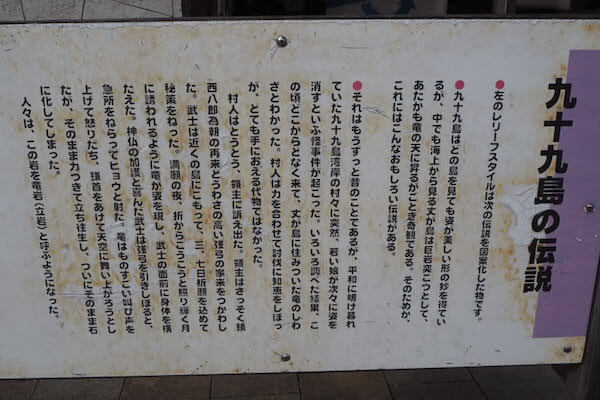 九十九島の伝説
●左のレリーフスタイルは次の伝説を図案化した物です。
●九十九島はどの島を見ても姿が美しい形の妙を得てい
るが、中でも海上から見る丈か島は巨岩突こつとして、
あたかも竜の天に昇るがごとき奇観である。そのためか、
これにはこんなおもしろい伝説がある。
●それはもうずっと昔のことであるが、平和に明け暮れ
ていた九十九島湾岸の村々に突然、若い娘が次々に姿を
消すといふ怪事件が起こった。いろいろ調べた結果、こ
の頃どこからとなく来て、丈が島に住みついた竜のしわ
ざとわかった。村人は力を合わせて討伐に知恵をしぼっ
が、とても手におえる代物ではなかった。
村人はとうとう、領主に訴え出た。領主はさっそく鎮
西八郎為朝の再来とうわさの高い強弓の家来をつかわし
た。武士は近くの島にこもって、三、七日祈願を込めて
秘策をねった。満願の夜、折からこうこうと照り輝く月
に誘われるように竜が姿を現し、武士の面前に身体を横
たえた。神仏の加護と喜んだ武士は強弓を引きしぼると、
急所をねらってヒョウと射た。竜はものすごい叫び声を
上げて怒りたち、鎌首をあげて天空に舞い上がろうとし
たが、そのまま力つきて立ち往生し、ついにそのまま石
に化してしまった。
人々は、この岩を竜岩（立岩）と呼ぶようになった。